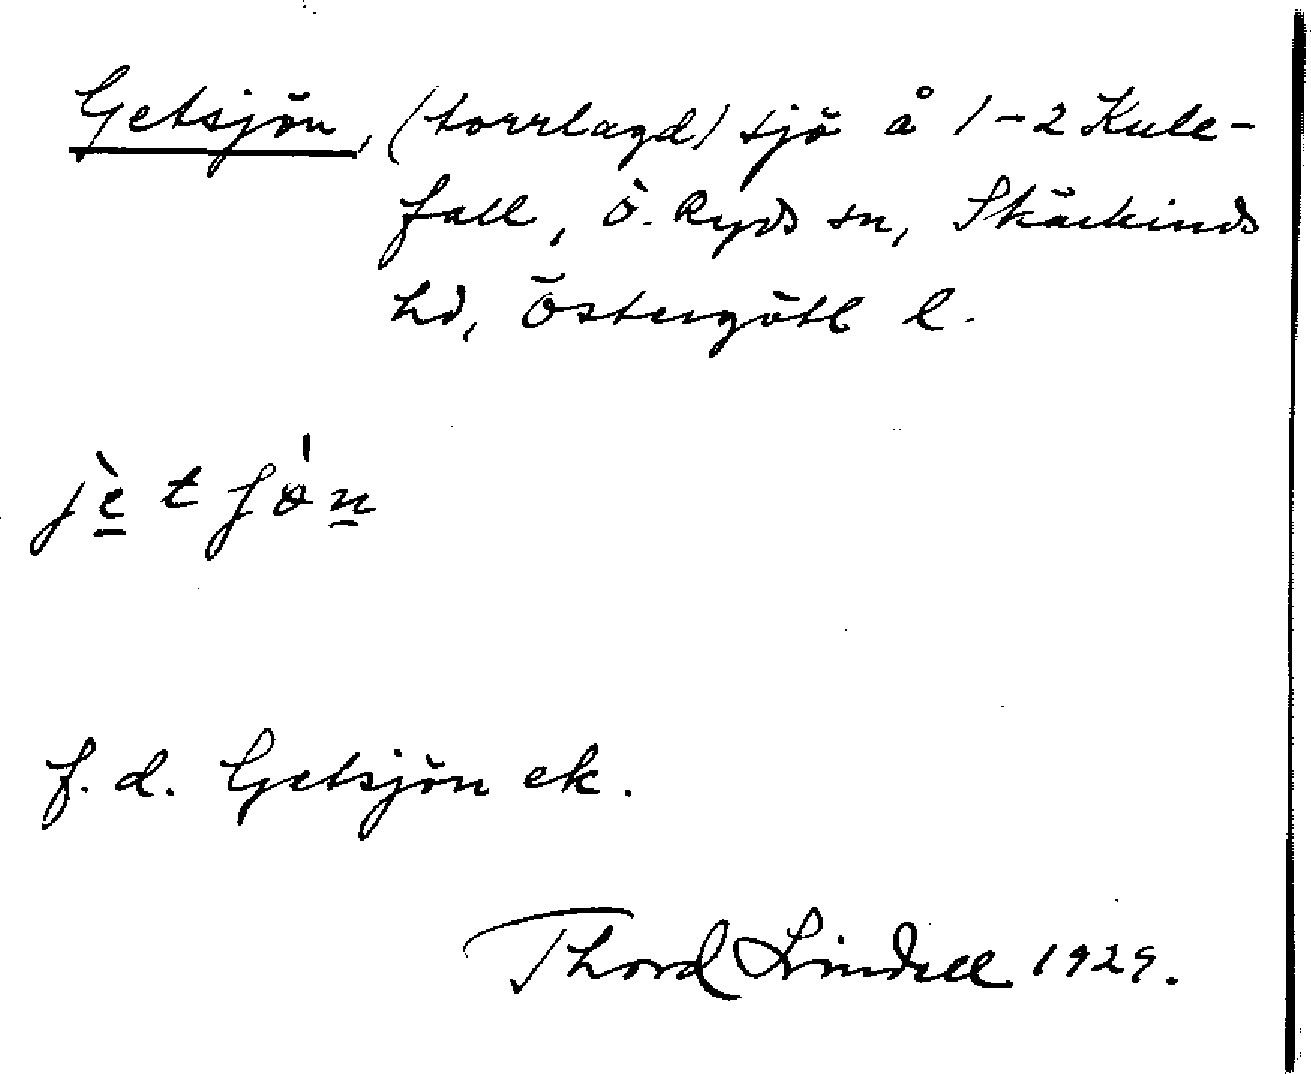 Getsjön, (torrlagd) sjö å 1-2 Kule-
fall, Ö. Ryds sn, Skärkinds
hd, Östergötl l.
jè̠ t ʃö̀n̠
f. d. Getsjön ek.
Thord Lindell 1929.